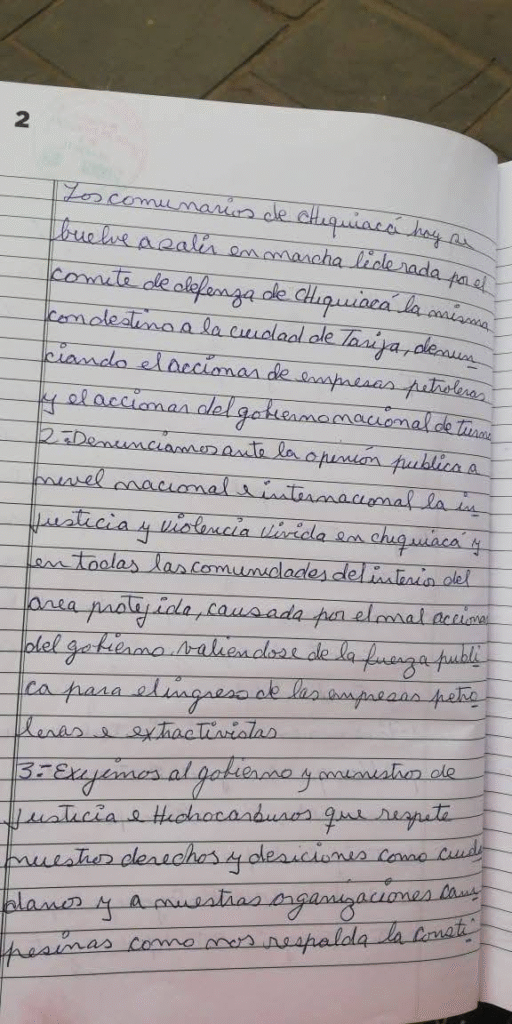 2
Los comunarios de chiquiacá hoy se
buelve a salir en marcha liderada por el
comite de defenza de chiquiacá la misma
con destino a la ciudad de Tarija, denun-
ciando el accionar de empresas petroleras
y el accionar del gobierno nacional de turno
2-Denunciamos ante la opinión publica a
nivel nacional e internacional la in-
justicia y violencia vivida en chiquiacá y
en todas las comunidades del interior del
area protejida, causada por el mal accionar
del gobierno valiendose de la fuerza publi-
ca para el ingreso de las empresas petro-
leras e extractivistas
3-Exijimos al gobierno y ministros de
justicia e Hidrocarburos que respete
nuestros derechos y desiciones como ciuda-
danos y a nuestras organizaciones cam-
pesinas como nos respalda la consti-